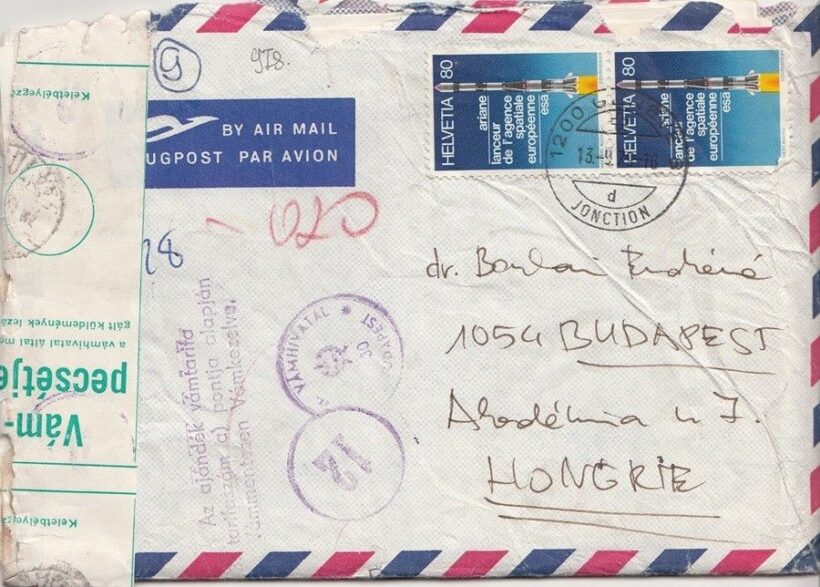 9
978.
BY AIR MAIL
UGPOST PAR AVION
HELVETIA 80
ariane
lanceur
de l'agence
spatiale
européenne
esa
HELVETIA 80
ariane
lanceur
de l'agence
spatiale
européenne
esa
1200 G
13.-9
d
JONCTION
28
- 020
dr.
1054 BUDAPEST
Akadémia u 7.
HONGRIE
VÁMHIVATAL *
12
Az ajándék vámtarifa
pontja alapján
Vámmentesen Vámkezelve.
Keletbélyegző
a vámhivatal által
gált küldemények
Vám-
pecsétje
Keletbélyegző